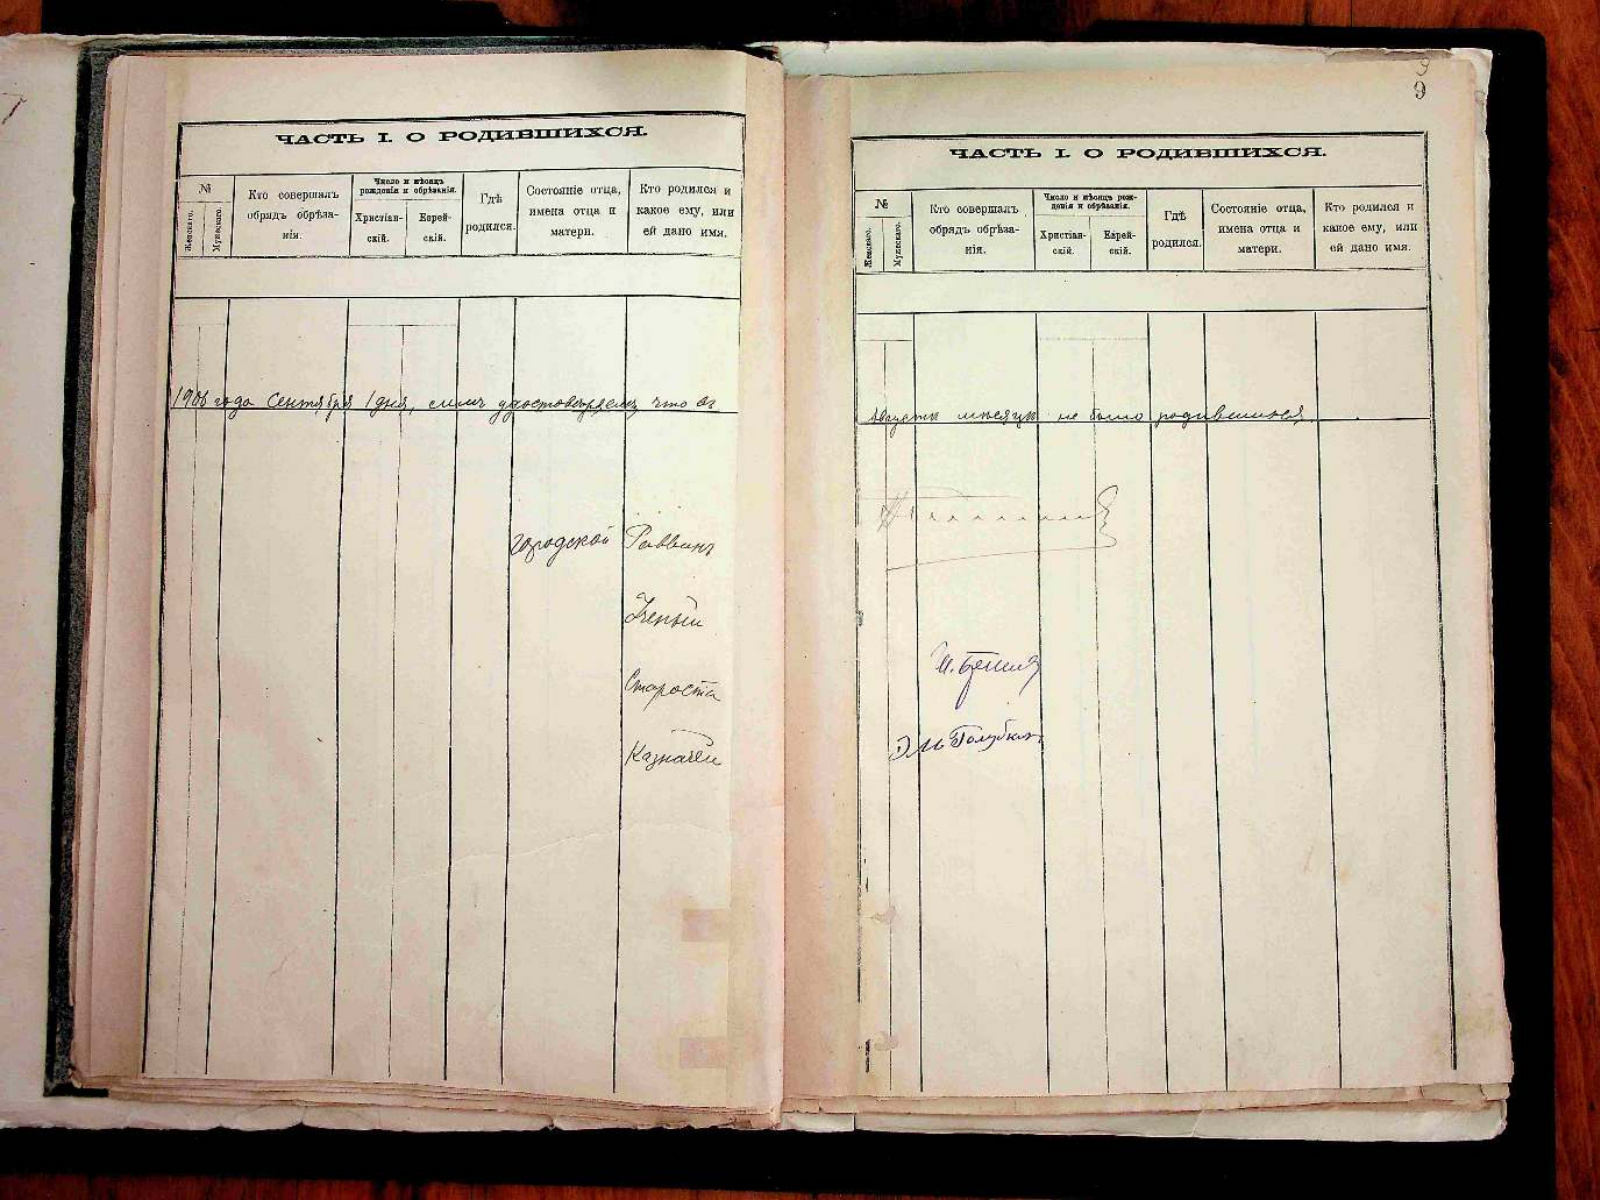 ЧАСТЬ I. О РОДИВШИХСЯ.
№
Женскаго.
Мужескаго.
Кто совершалъ
обрядъ обрѣза-
нія.
Число и мѣсяцъ
рожденія и обрѣзанія.
Христіан-
скій.
Еврей-
скій.
Гдѣ
родился.
Состояніе отца,
имена отца и
матери.
Кто родился и
какое ему, или
ей дано имя.
1906 года Сентября 1 дня, симъ удостовѣряемъ что въ
Городской Раввинъ
Ученый
Староста
Казначей
9
ЧАСТЬ I. О РОДИВШИХСЯ.
№
Женскаго.
Мужескаго.
Кто совершалъ
обрядъ обрѣза-
нія.
Число и мѣсяцъ рож-
денія и обрѣзанія.
Христіан-
скій.
Еврей-
скій.
Гдѣ
родился.
Состояніе отца,
имена отца и
матери.
Кто родился и
какое ему, или
ей дано имя.
Августѣ мѣсяцѣ не было родившихся.
Голубкин